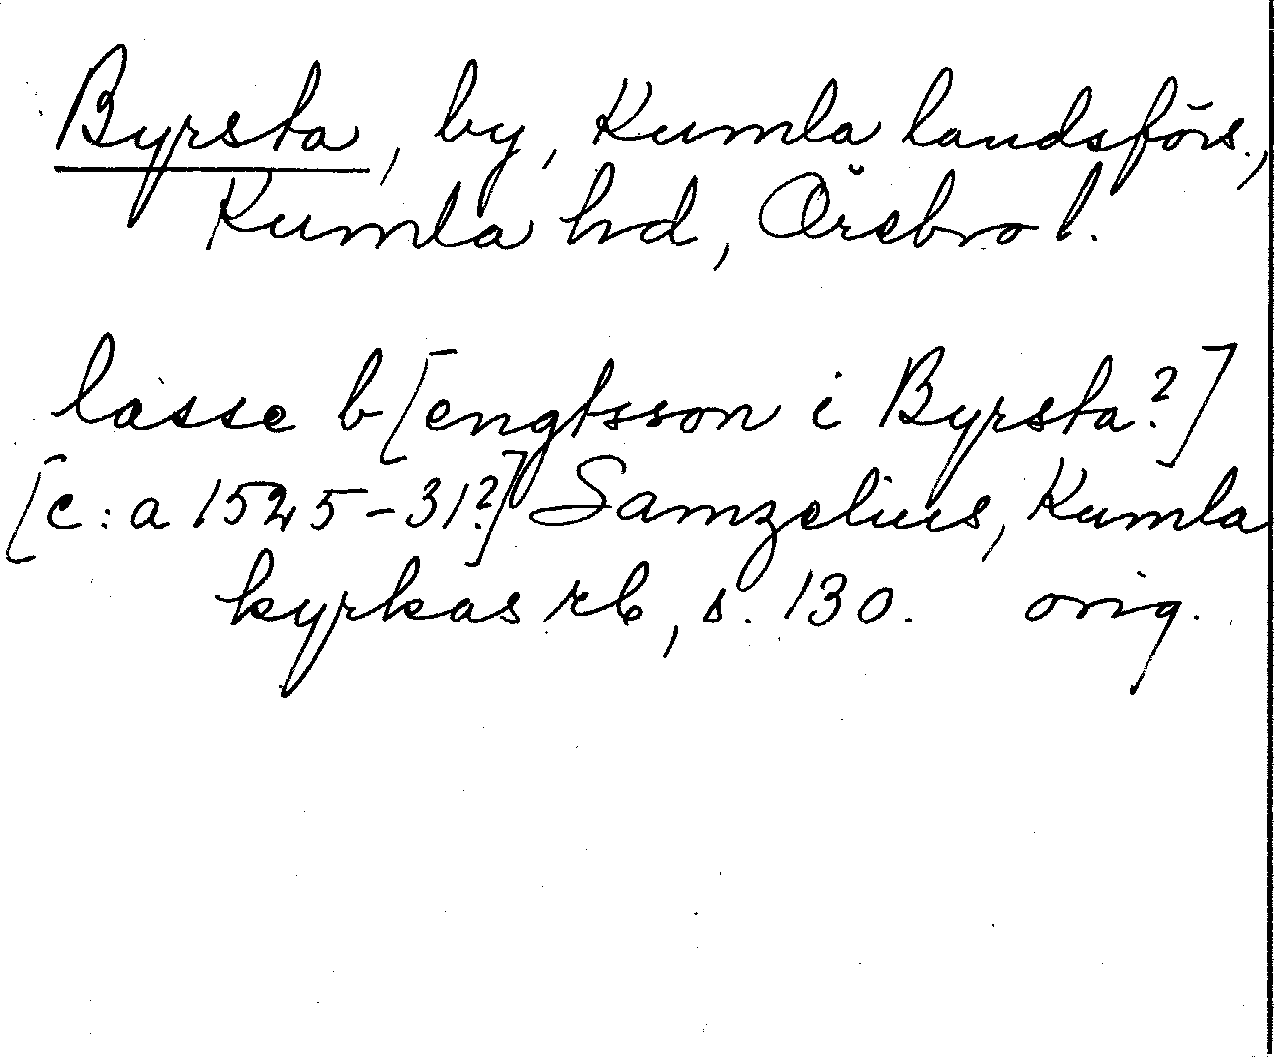 Byrsta, by, Kumla landsförs.,
Kumla hd, Örebro l.
lasse b[engtsson i Byrsta?]
[c:a 1525-31?] Samzelius, Kumla
kyrkas rb, s. 130. orig.